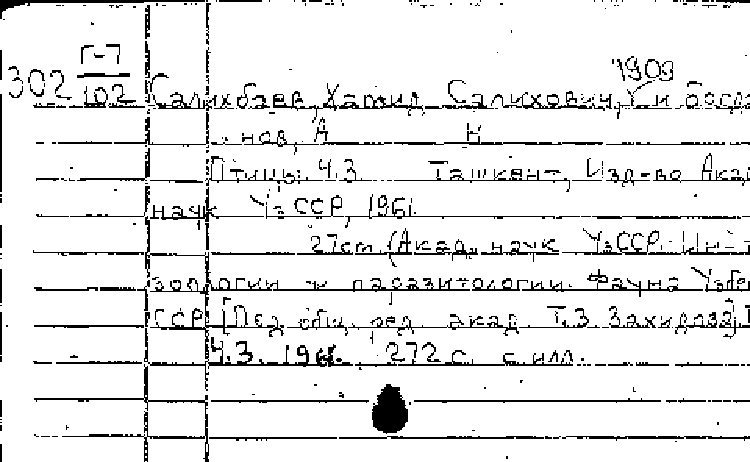 Г-7
302 102
1909
Салихбаев, Хамид Салихович, и Богда
нов, А Н
Птицы. Ч.3. Ташкент, Изд-во Акад
наук УзССР, 1961.
27cm. (Акад. наук УзССР. Ин-т
зоологии и паразитологии. Фауна Узбек
ССР [Под общ. ред. акад. Т.З. Захидова]. Т
Ч.3. 1961. 272 с. с илл.